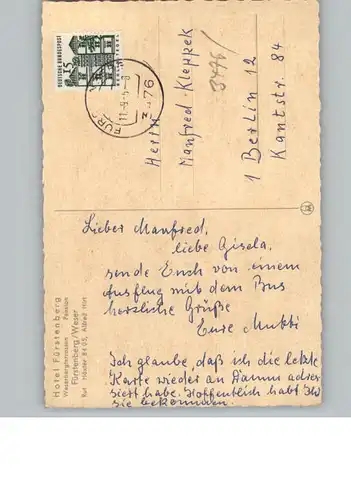 DEUTSCHE BUNDESPOST
15
3476
Herrn
Manfred Kleppek
1 Berlin 12
Kantstr. 84
Lieber Manfred,
liebe Gisela,
sende Euch von einem
Ausflug mit dem Bus
herzliche Grüße
Eure Mutti
Ich glaube, daß ich die letzte
Karte wieder an Damm adres
siert habe. Hoffentlich habt Ihr
sie bekommen.
Hotel Fürstenberg
Weserbergterrassen Pension
Fürstenberg/Weser
Ruf Höxter 84 05, Alfred